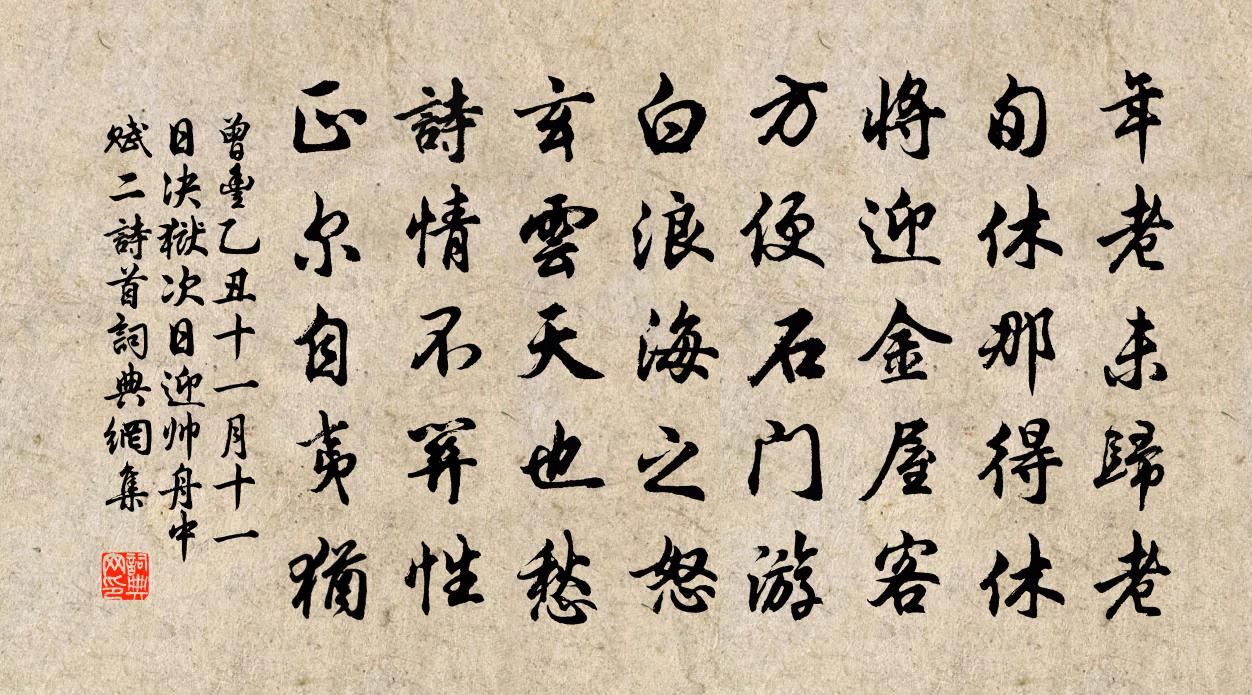 年老未歸老
旬休那得休
將迎金屋客
方便石门游
白浪海之怒
玄雲天也愁
詩情不奔性
正尔自夷猶
曾豐乙丑十一月十一
日决獄次日迎帅舟中
赋二詩首詞典網集
詞典
网印